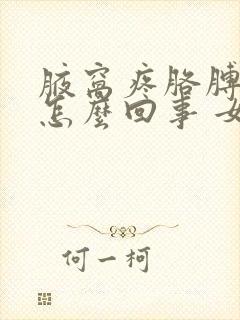 腋窝疼胳膊
怎麽回事 女
何一柯